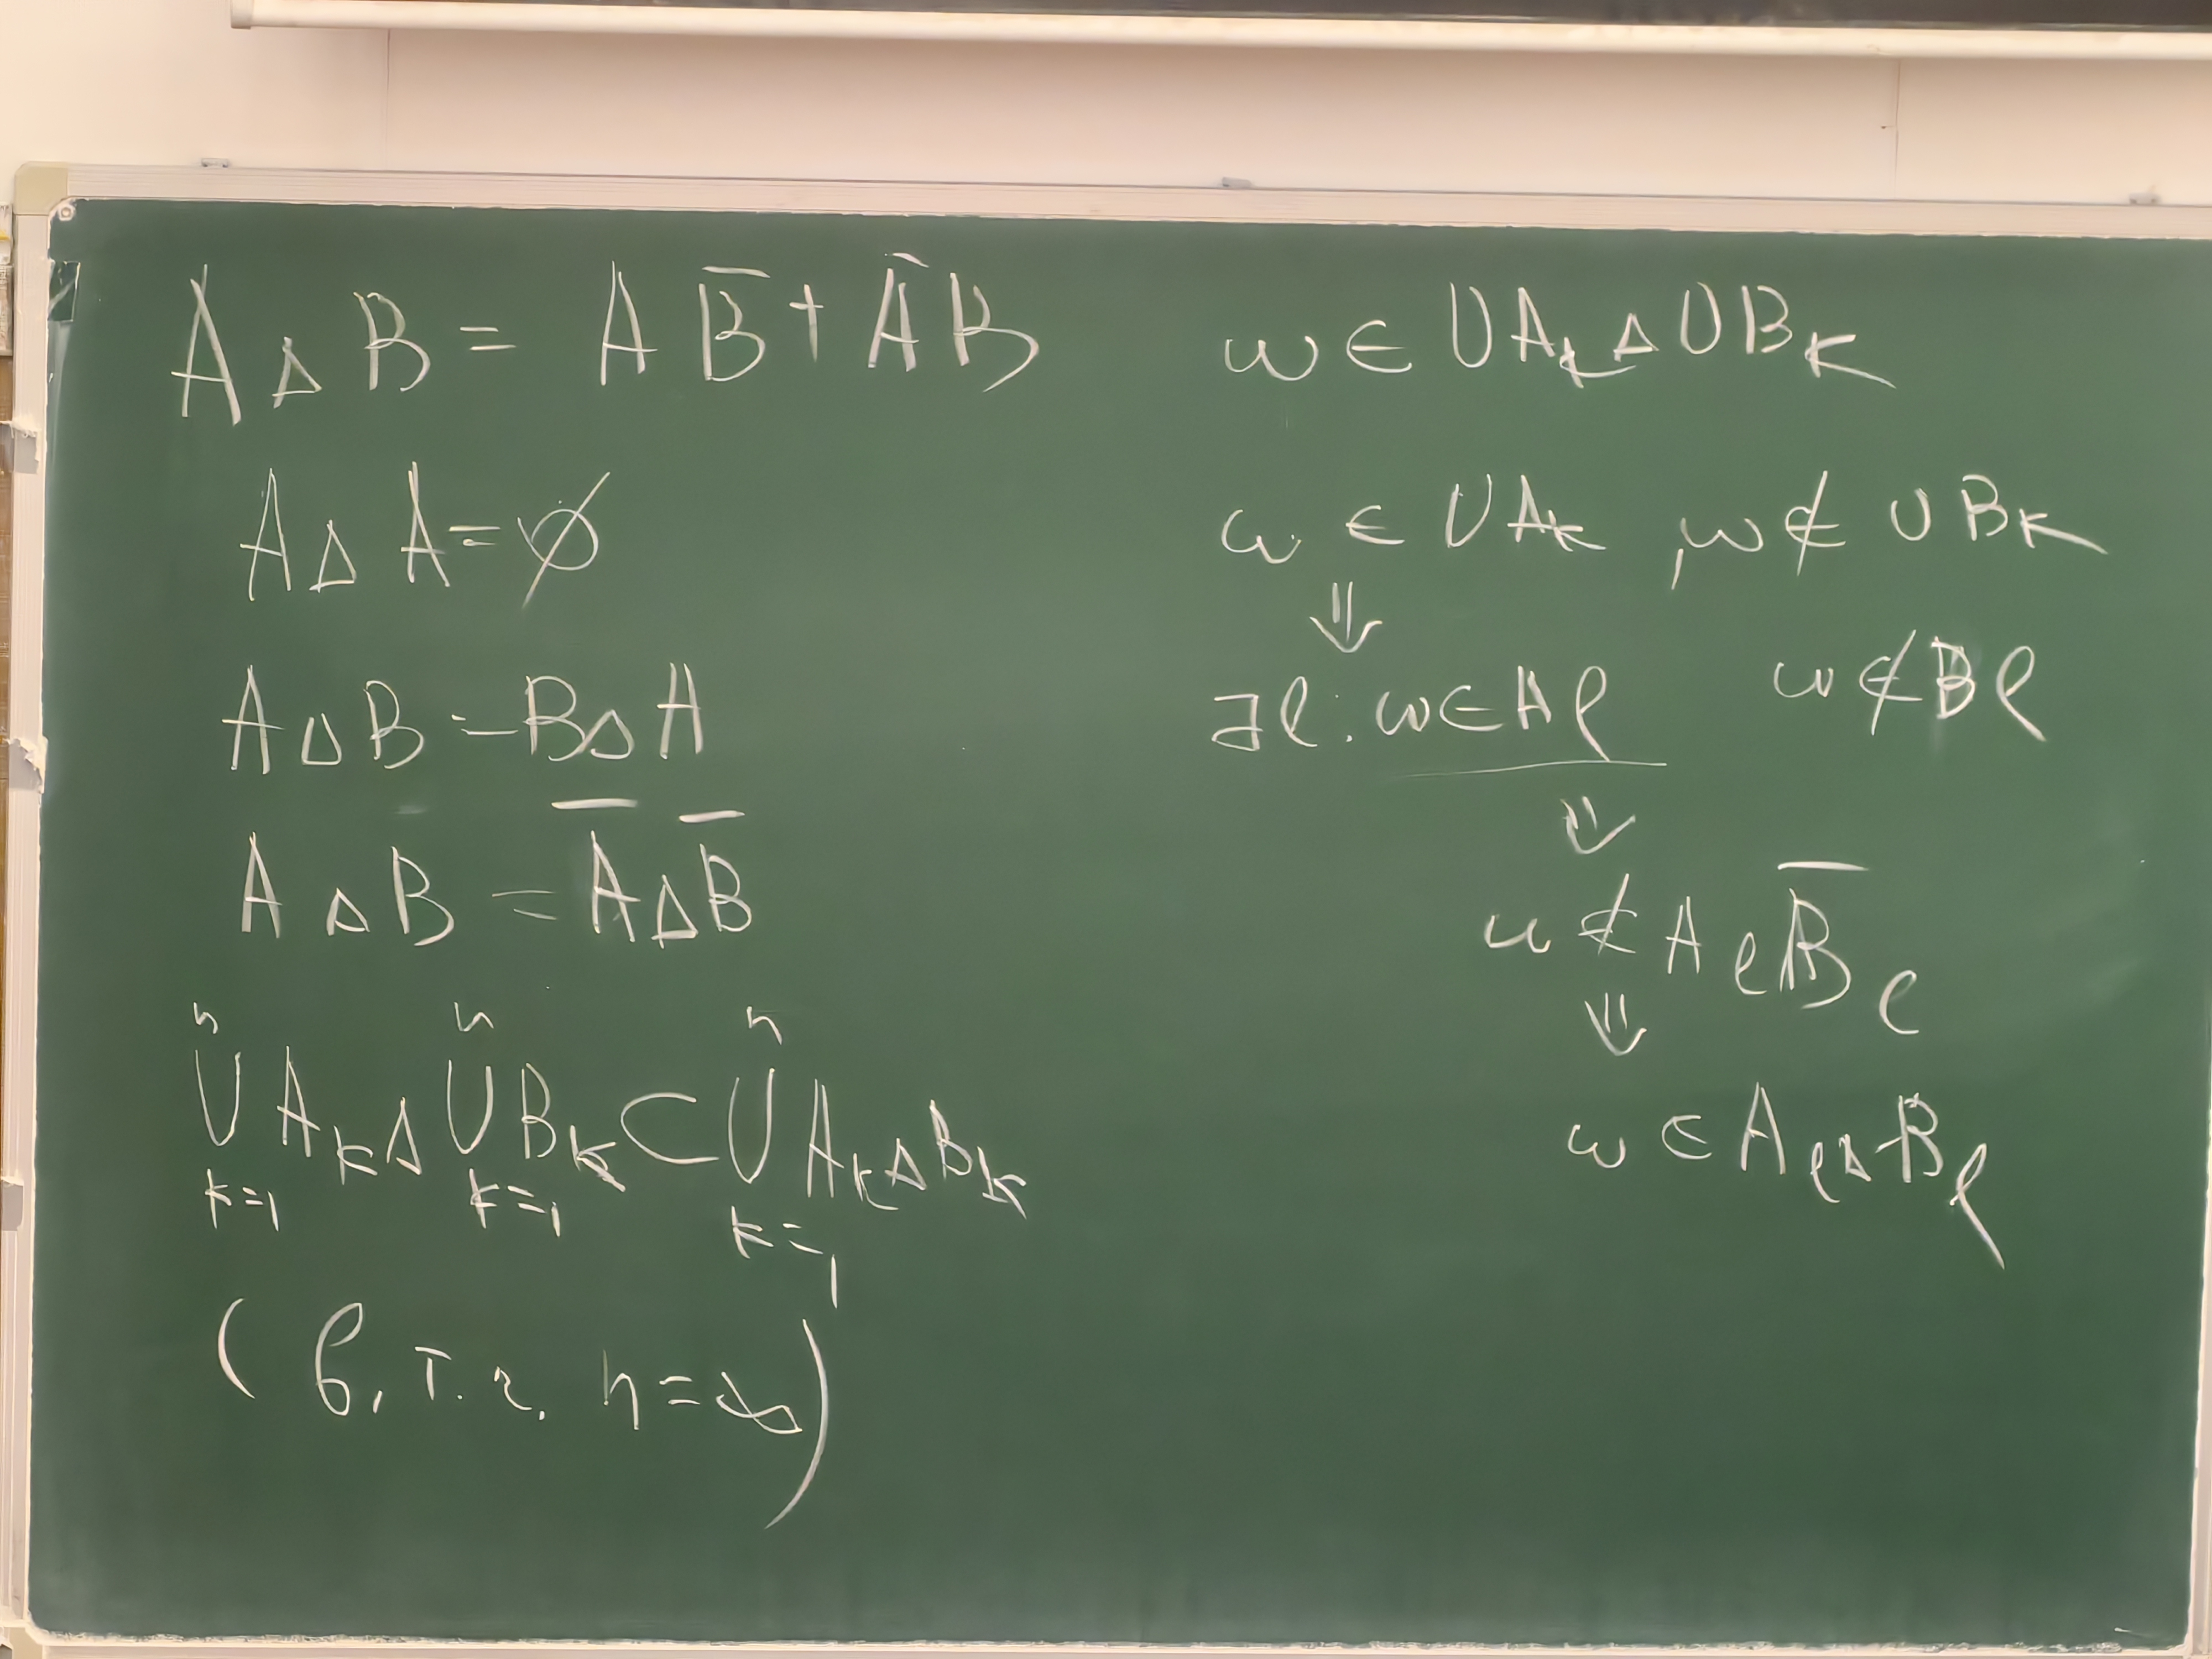 A △ B = A B̅ + A̅ B
A △ A = ∅
A △ B = B △ A
A △ B = A̅ △ B̅
n n n
∪ A_k △ ∪ B_k ⊂ ∪ A_k △ B_k
k=1 k=1 k=1
( в. т. ч. n = ∞ )
ω ∈ ∪ A_k △ ∪ B_k
ω ∈ ∪ A_k , ω ∉ ∪ B_k
⇓
∃ ℓ : ω ∈ A_ℓ ω ∉ B_ℓ
⇓
ω ∉ A_ℓ B̅_ℓ
⇓
ω ∈ A_ℓ △ B_ℓ